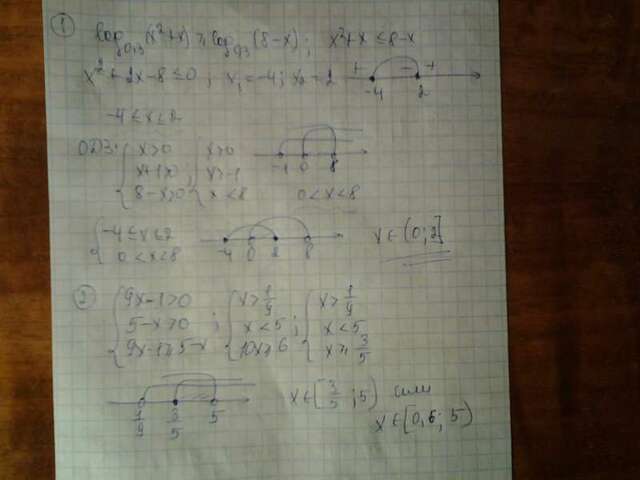 ① log₀,₃(x²+x) ⩾ log₀,₃(8-x); x²+x ≤ 8-x
x²+2x-8≤0; x₁=-4; x₂=2 + - + -4 2
-4≤x≤2
ОДЗ: { x>0 x+1>0 8-x>0 ; { x>0 x>-1 x<8 -1 0 8 0<x<8
{ -4≤x≤2 0<x<8 -4 0 2 8 x∈(0;2]
② { 9x-1>0 5-x>0 9x-1⩾5-x ; { x>1/9 x<5 10x⩾6 ; { x>1/9 x<5 x⩾3/5
1/9 3/5 5 x∈[3/5;5) или
x∈[0,6;5)